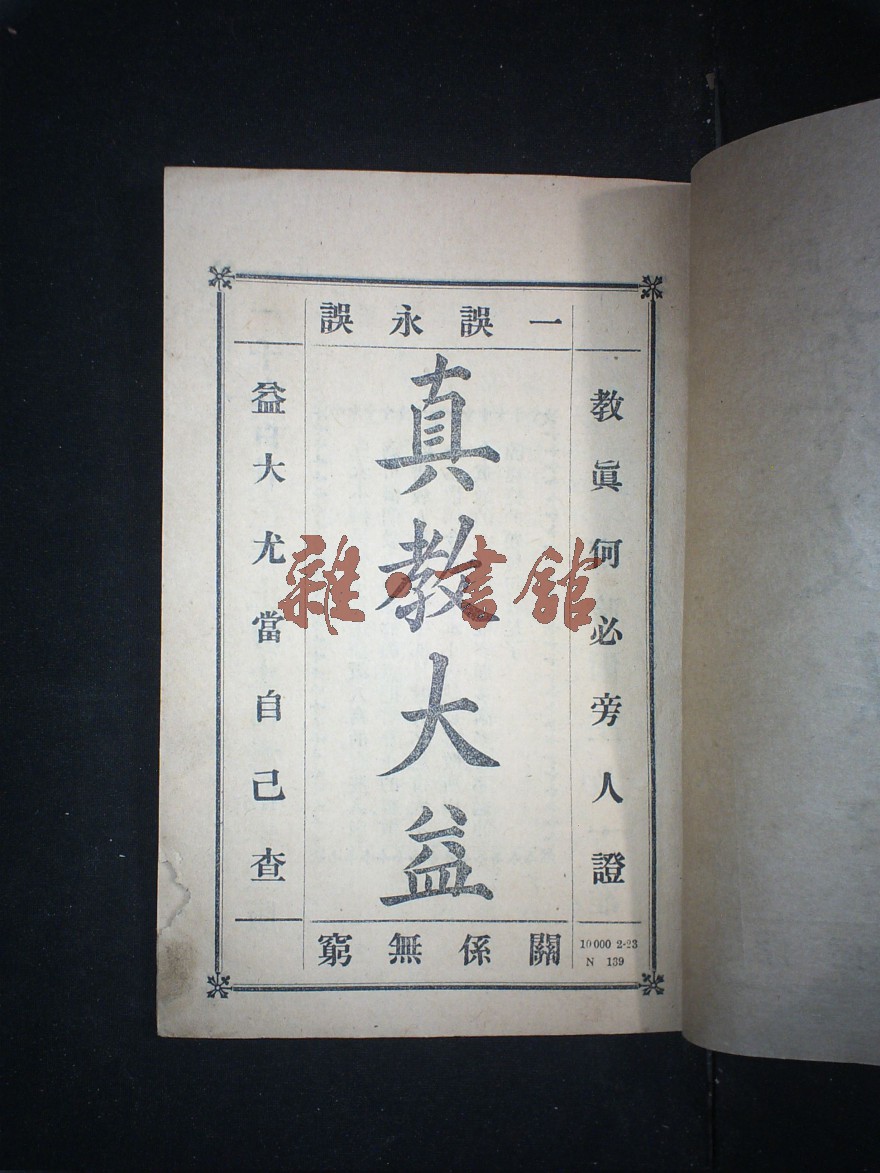 一誤永誤
教眞何必旁人證
真教大益
益大尤當自己查
關係無窮
10000 2-23
N 139
雜·書館